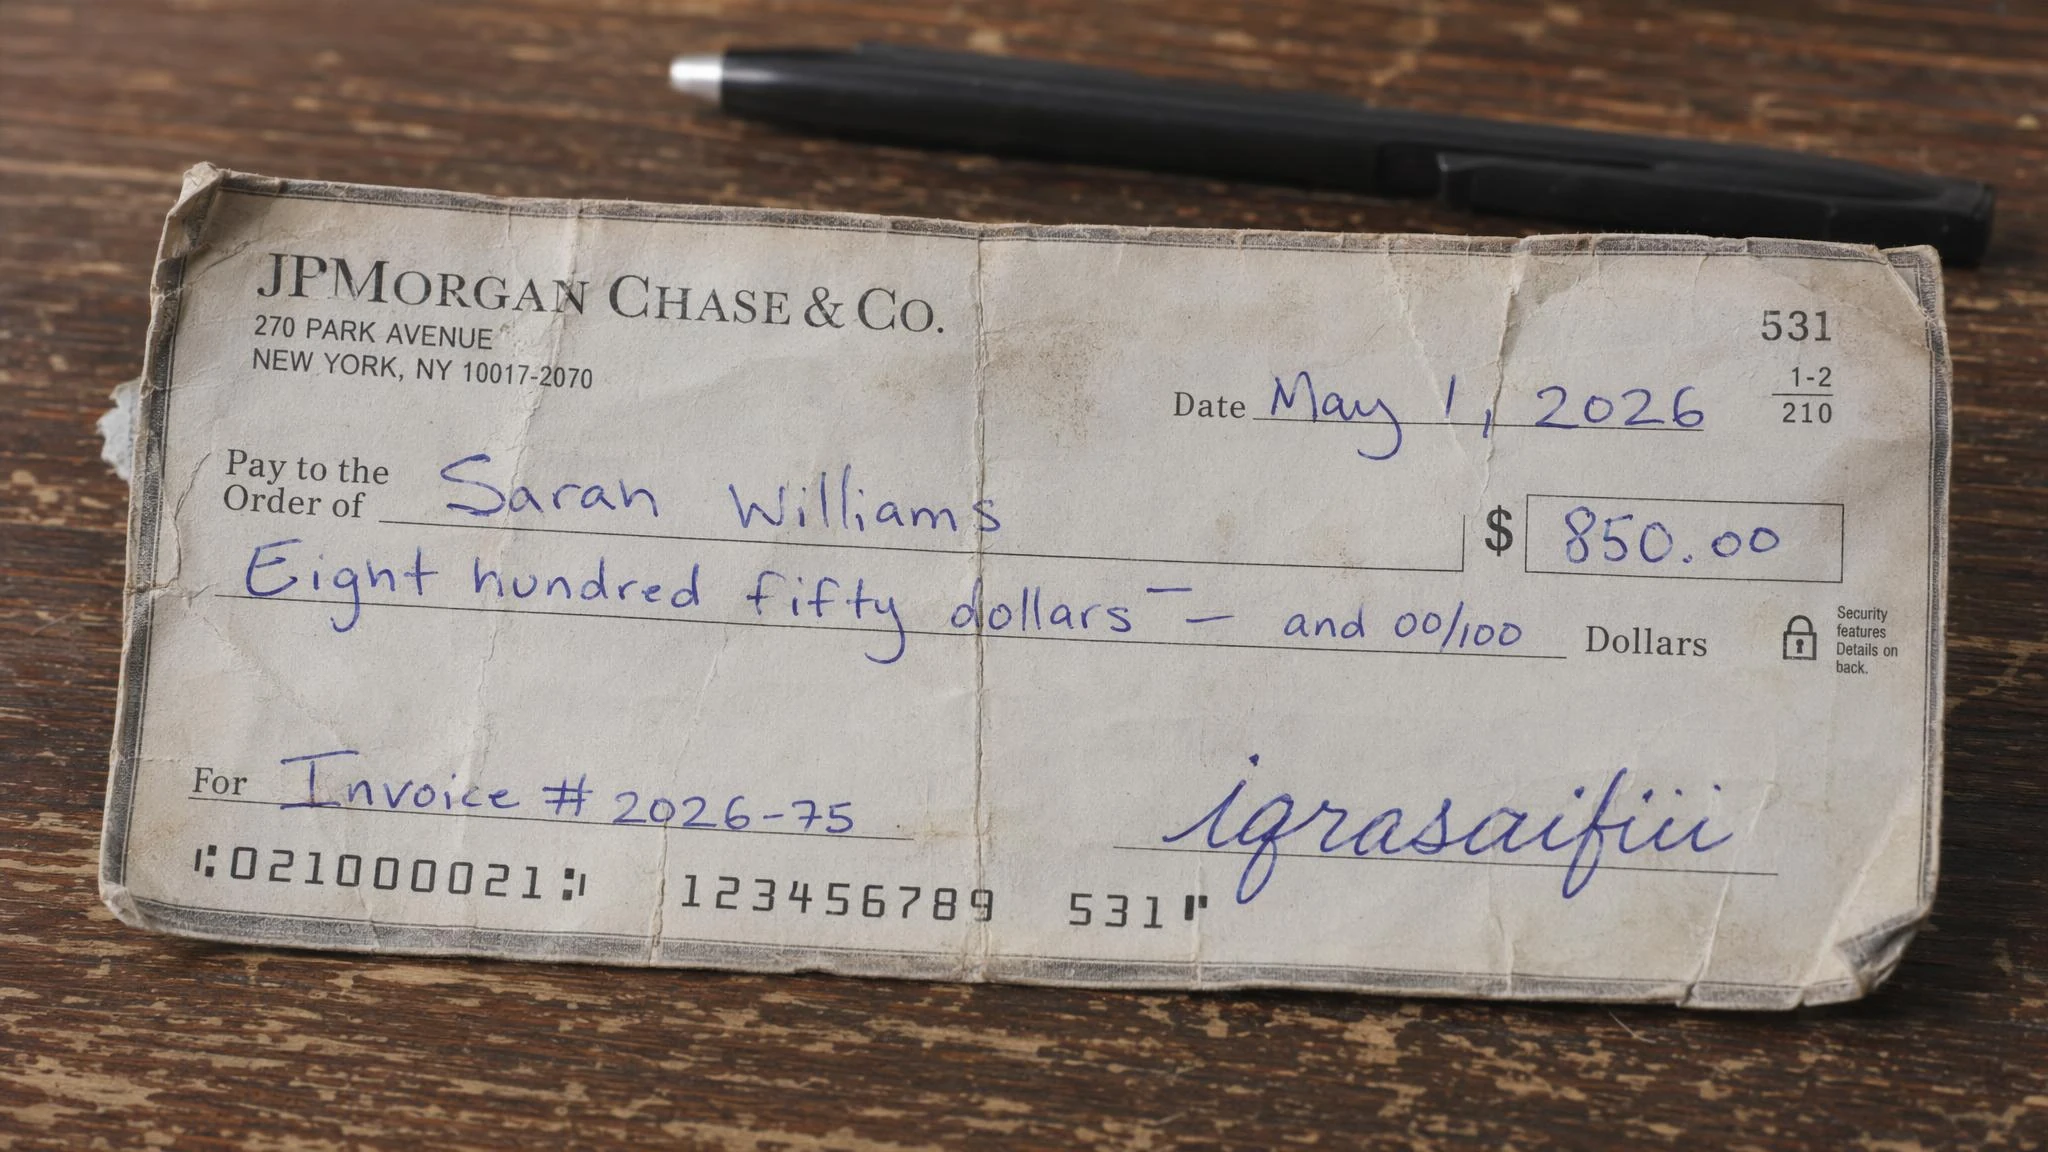 JPMORGAN CHASE & CO.
270 PARK AVENUE
NEW YORK, NY 10017-2070
531
1-2
210
Date May 1, 2026
Pay to the
Order of Sarah Williams
$ 850.00
Eight hundred fifty dollars — — and 00/100 Dollars
Security
features
Details on
back.
For Invoice # 2026-75
iqrasaifiii
⑆021000021⑆ 123456789 531⑈